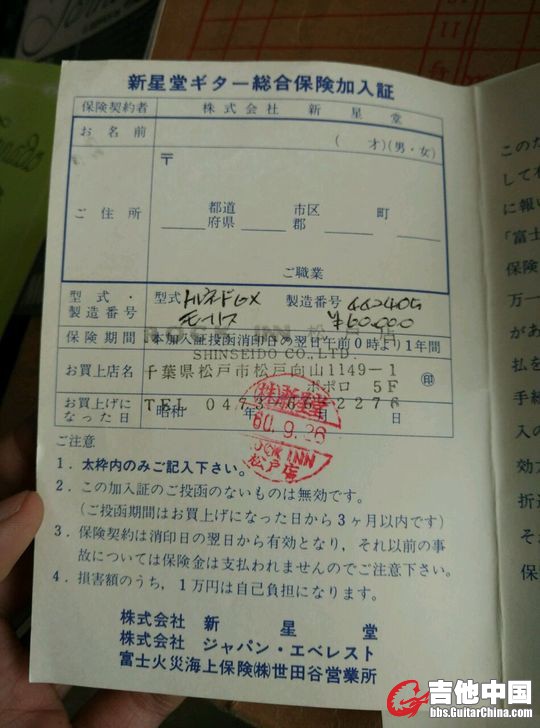 新星堂ギター総合保険加入証
保険契約者 株式会社 新星堂
お名前 ( 才)(男・女)
〒
ご住所 都道府県 市区郡 町
ご職業
型式・製造番号 型式 トルネードGX 製造番号
モーリス ¥60,000
ROCK INN 松戸店
保険期間 本加入証投函消印日の翌日午前0時より1年間
SHINSEIDO CO.,LTD.
お買上店名 千葉県松戸市松戸向山1149-1
ポポロ 5F 印
TEL 0473 2276
お買上げになった日 昭和 年 日
㈱新星堂
60.9.26
ROCK INN
松戸店
ご注意
1. 太枠内のみご記入下さい。
2. この加入証のご投函のないものは無効です。
(ご投函期間はお買上げになった日から3ヶ月以内です)
3. 保険契約は消印日の翌日から有効となり,それ以前の事
故については保険金は支払われませんのでご注意下さい。
4. 損害額のうち,1万円は自己負担になります。
株式会社 新星堂
株式会社 ジャパン・エベレスト
富士火災海上保険㈱世田谷営業所
このた
して
に報い
「富士
保険
万一
があ
払を
手続
入の
効力
折返
それ
保
吉他中国
bbs.GuitarChina.com